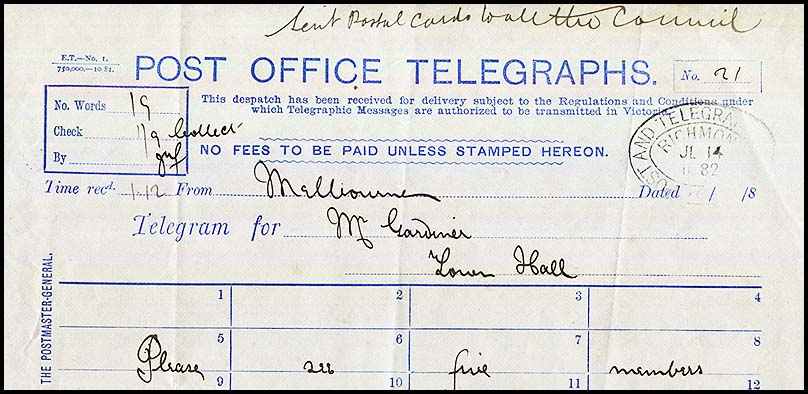 Sent Postal Cards to all the Council
E.T.—No. 1.
750,000.—10.81.
POST OFFICE TELEGRAPHS.
No. 21
This despatch has been received for delivery subject to the Regulations and Conditions under
which Telegraphic Messages are authorized to be transmitted in Victoria
No. Words 19
Check 1/9 Collect
By
NO FEES TO BE PAID UNLESS STAMPED HEREON.
POST AND TELEGRA
RICHMON
JL 14
82
Time recd. 1.12 From Melbourne Dated / /8
Telegram for Mr Gardiner
Town Hall
THE POSTMASTER-GENERAL.
1 2 3 4
5 6 7 8
Please see five members
9 10 11 12